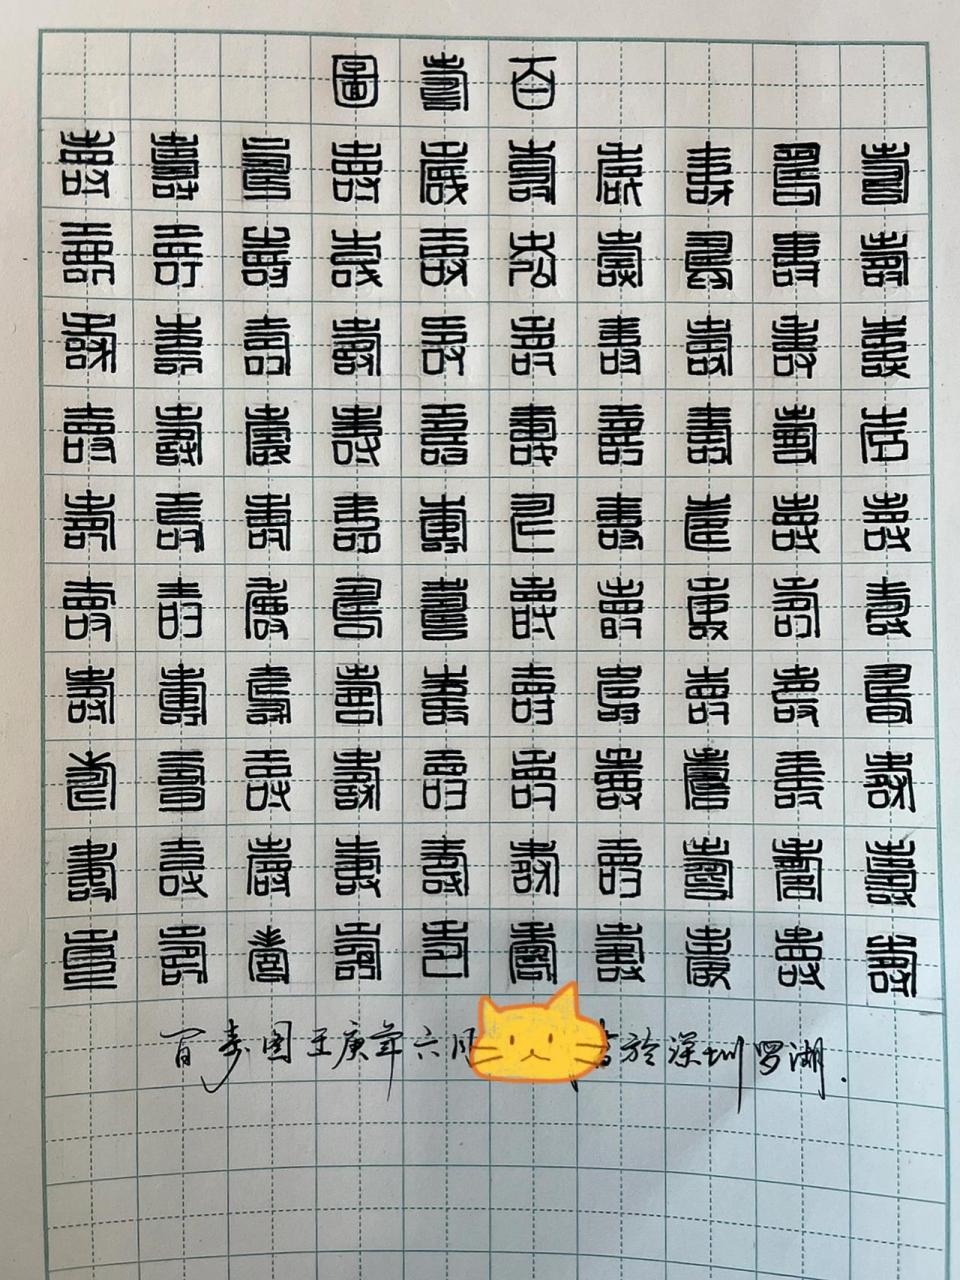 百壽圖
壽壽壽壽壽壽壽壽壽壽
壽壽壽壽壽壽壽壽壽壽
壽壽壽壽壽壽壽壽壽壽
壽壽壽壽壽壽壽壽壽壽
壽壽壽壽壽壽壽壽壽壽
壽壽壽壽壽壽壽壽壽壽
壽壽壽壽壽壽壽壽壽壽
壽壽壽壽壽壽壽壽壽壽
壽壽壽壽壽壽壽壽壽壽
壽壽壽壽壽壽壽壽壽壽
百寿图王庚年六月於深圳罗湖.